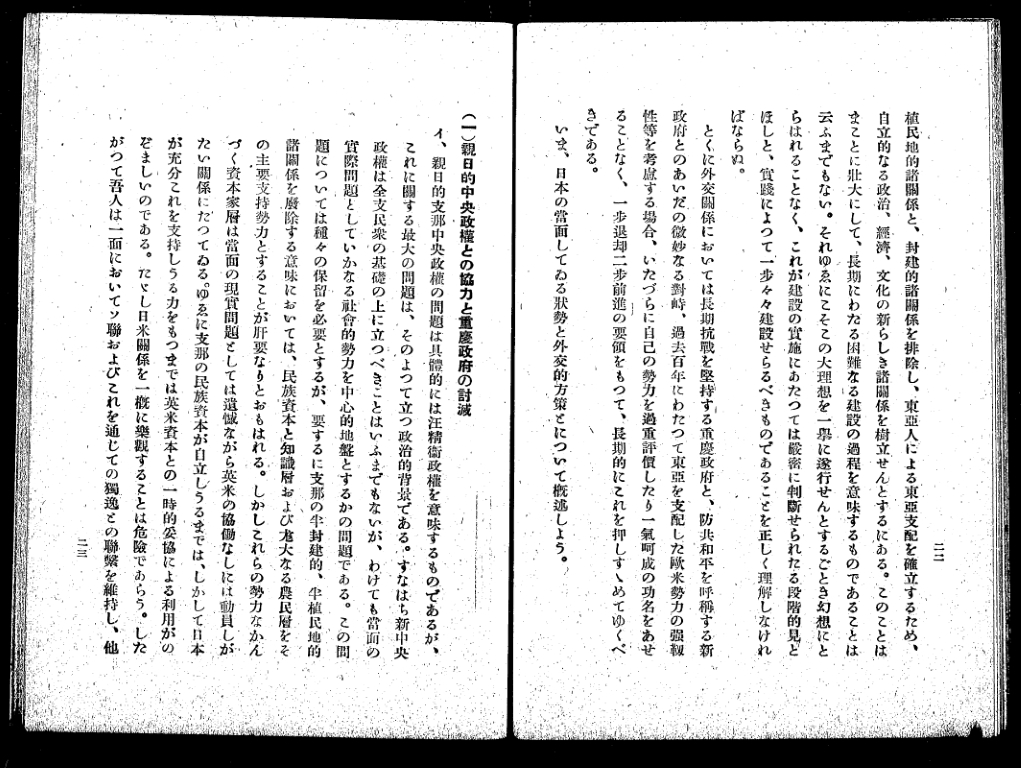 植民地的諸關係と、封建的諸關係を排除し、東亞人による東亞支配を確立するため、
自立的なる政治、經濟、文化の新らしき諸關係を樹立せんとするにある。このことは
まことに壯大にして、長期にわたる困難なる建設の過程を意味するものであることは
云ふまでもない。それゆゑにこそこの大理想を一擧に遂行せんとするごとき幻想にと
らはれることなく、これが建設の實施にあたつては嚴密に判斷せられたる段階的見と
ほしと、實踐によつて一歩々々建設せらるべきものであることを正しく理解しなけれ
ばならぬ。
とくに外交關係においては長期抗戰を堅持する重慶政府と、防共和平を呼稱する新
政府とのあいだの微妙なる對峙、過去百年にわたつて東亞を支配した歐米勢力の强靱
性等を考慮する場合、いたづらに自己の勢力を過重評價したり一氣呵成の功名をあせ
ることなく、一歩退却二歩前進の要領をもつて、長期的にこれを押しすゝめてゆくべ
きである。
いま、日本の當面してゐる狀勢と外交的方策とについて槪述しよう。
二二
(一)親日的中央政權との協力と重慶政府の討滅
イ、親日的支那中央政權の問題は具體的には汪精衞政權を意味するものであるが、
これに關する最大の問題は、そのよつて立つ政治的背景である。すなはち新中央
政權は全支民衆の基礎の上に立つべきことはいふまでもないが、わけても當面の
實際問題としていかなる社會的勢力を中心的地盤とするかの問題である。この問
題については種々の保留を必要とするが、要するに支那の半封建的、半植民地的
諸關係を廢除する意味においては、民族資本と知識層および尨大なる農民層をそ
の主要支持勢力とすることが肝要なりとおもはれる。しかしこれらの勢力なかん
づく資本家層は當面の現實問題としては遺憾ながら英米の協働なしには動員しが
たい關係にたつてゐる。ゆゑに支那の民族資本が自立しうるまでは、しかして日本
が充分これを支持しうる力をもつまでは英米資本との一時的妥協による利用がの
ぞましいのである。たゞし日米關係を一槪に樂觀することは危險であらう。した
がつて吾人は一面においてソ聯およびこれを通じての獨逸との聯繫を維持し、他
二三